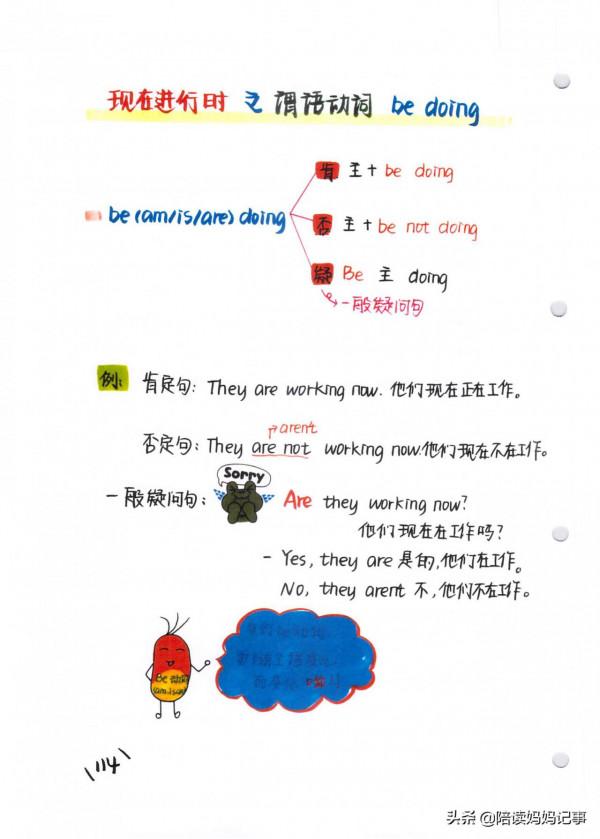 现在进行时 之 谓语动词 be doing
肯 主+ be doing
be (am/is/are) doing
否 主+ be not doing
疑 Be 主 doing
一般疑问句
例: 肯定句: They are working now. 他们现在正在工作。
arent
否定句: They are not working now. 他们现在不在工作。
Sorry
一般疑问句: Are they working now?
他们现在在工作吗?
- Yes, they are 是的,他们在工作。
No, they arent 不,他们不在工作。
Be 动词
(am.is.are)
114
头条 @陪读妈妈记事